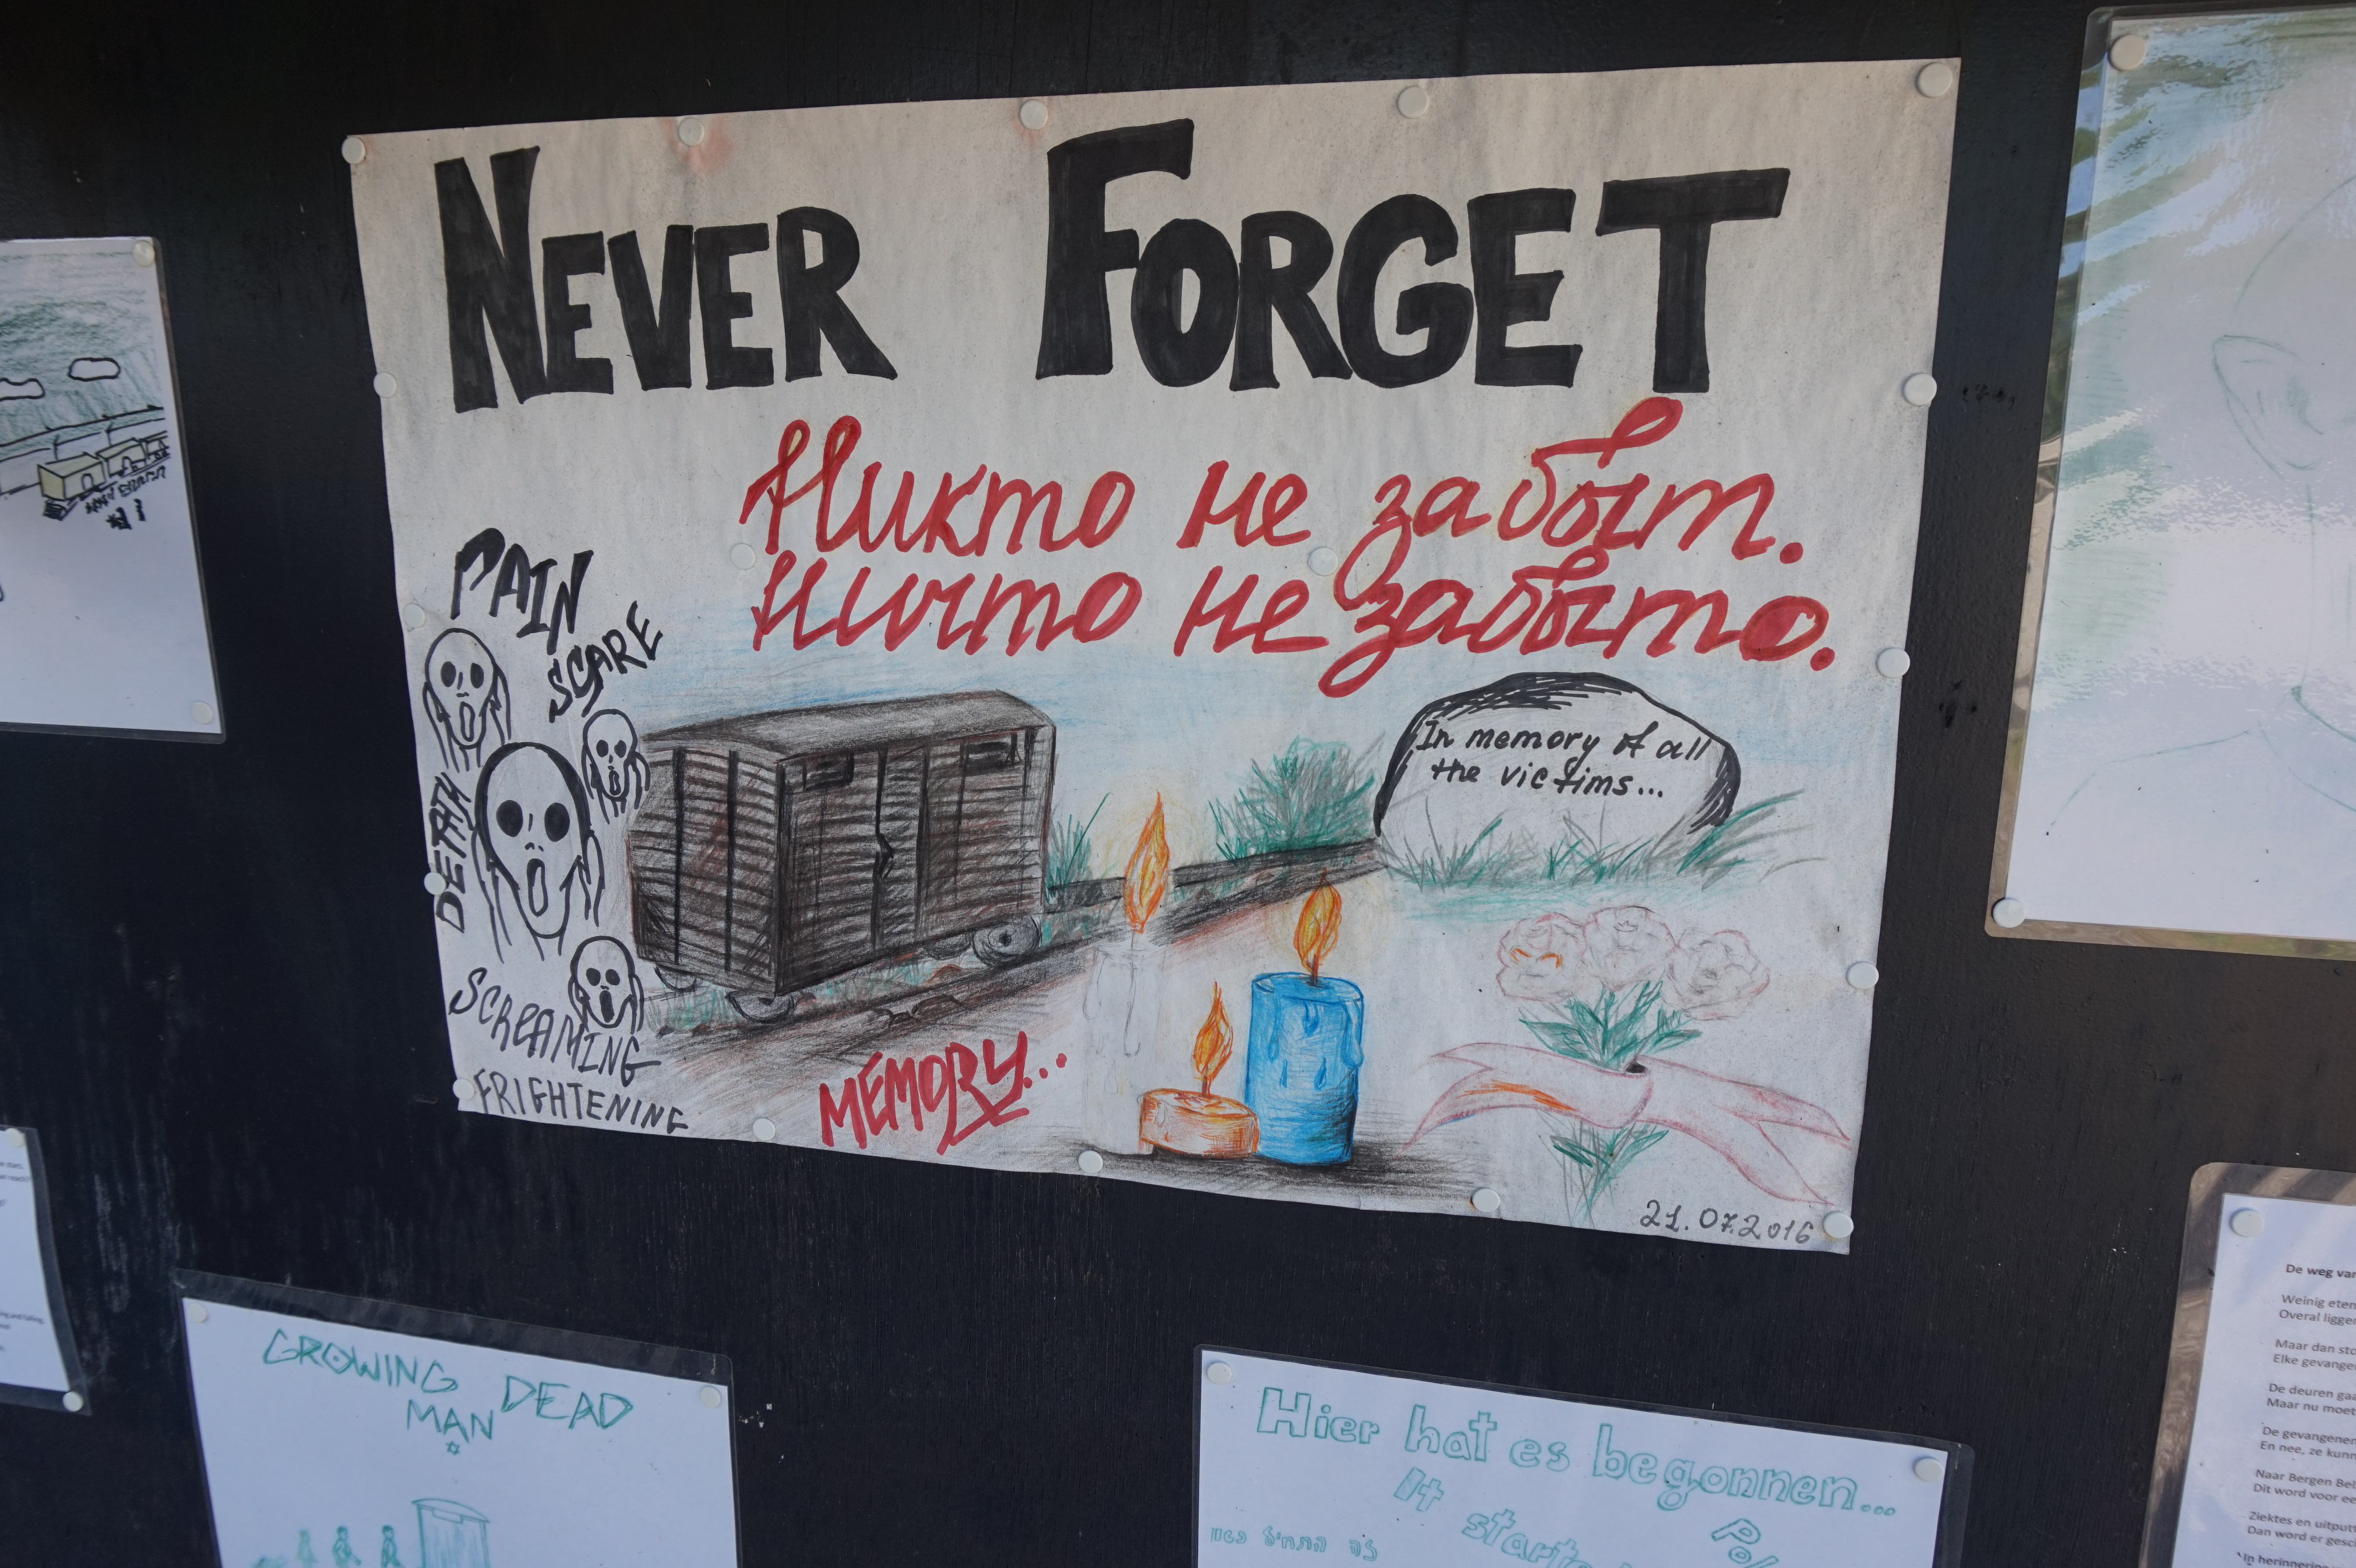 NEVER FORGET
Никто не забыт.
Ничто не забыто.
PAIN
SCARE
DEATH
SCREAMING
FRIGHTENING
In memory of all
the victims...
MEMORY...
21.07.2016
GROWING DEAD
MAN
Hier hat es begonnen...
It started
De weg
Weinig eten
Overal
Maar dan
Elke
De deuren
Maar nu
De gevangenen
En nee, ze
Naar Bergen
Dit word voor
Ziektes en
Dan word er